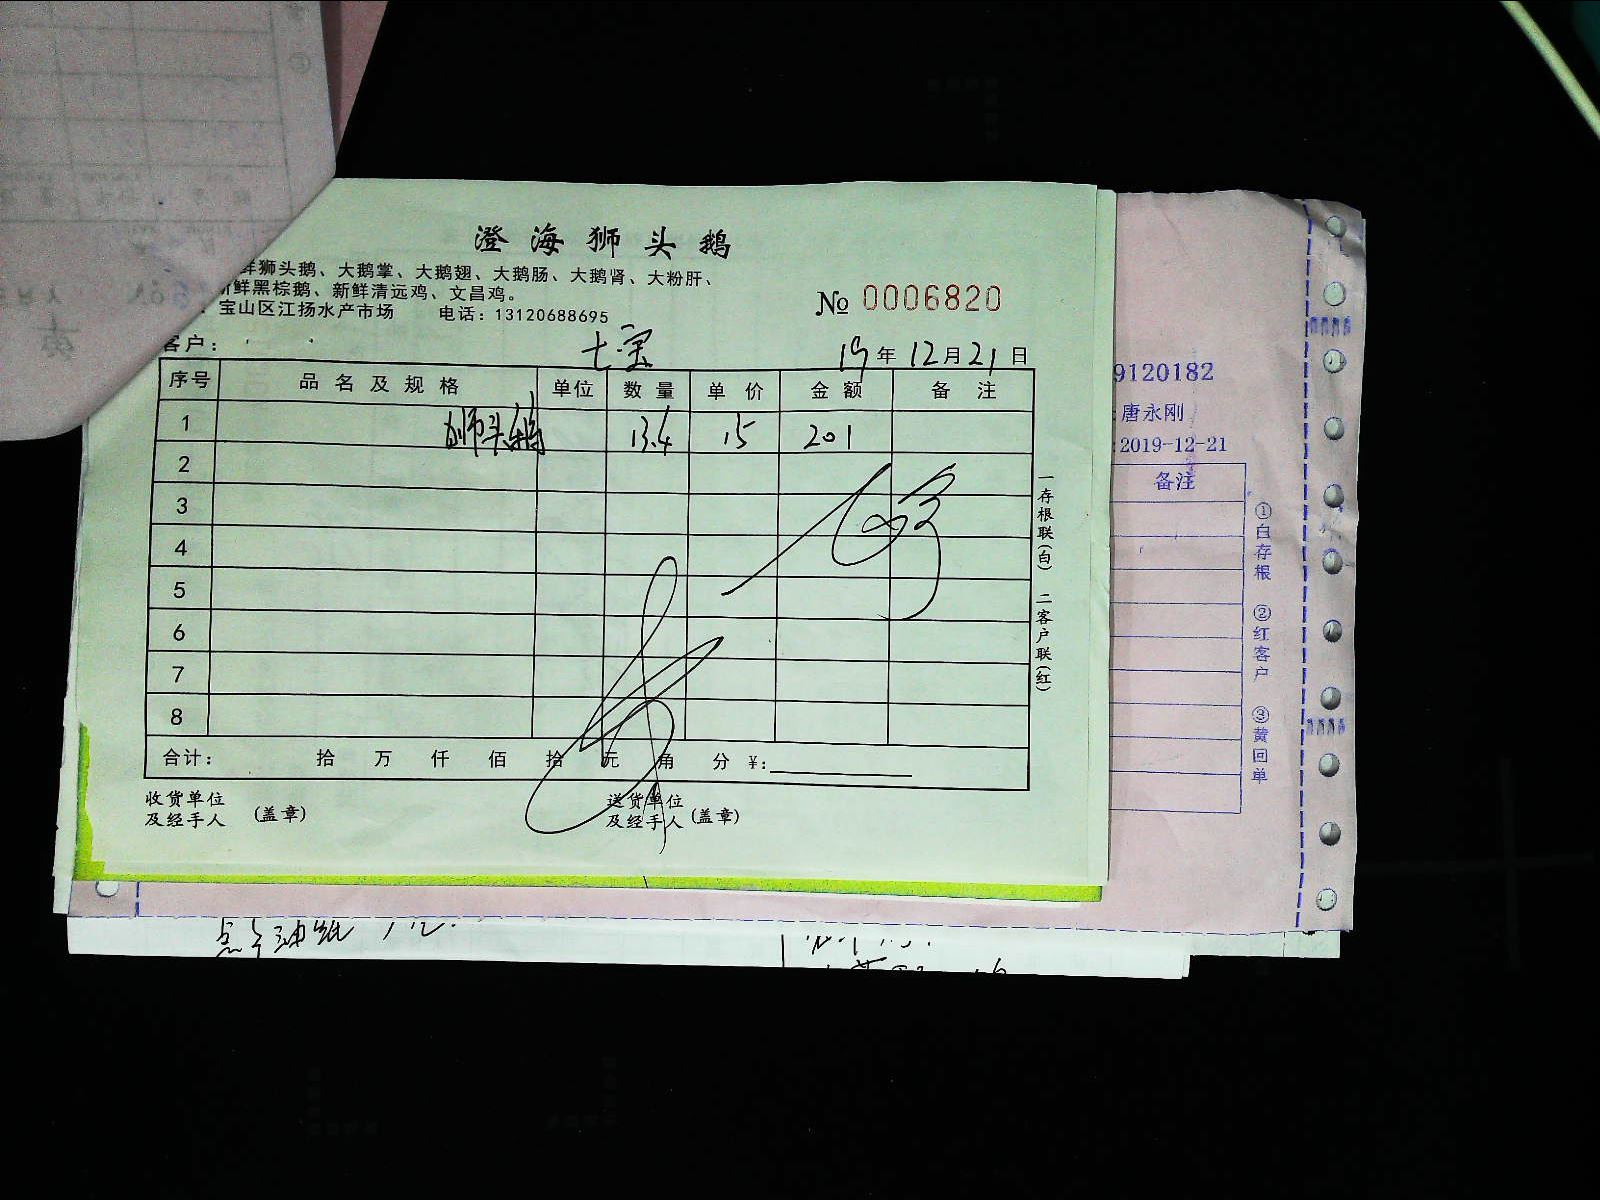 澄海狮头鹅
鲜狮头鹅、大鹅掌、大鹅翅、大鹅肠、大鹅肾、大粉肝、
新鲜黑棕鹅、新鲜清远鸡、文昌鸡。
宝山区江扬水产市场 电话：13120688695
№ 0006820
客户： 七宝 19年12月21日
序号 品名及规格 单位 数量 单价 金额 备注
1 狮头鹅 13.4 15 201
2
3
4
5
6
7
8
合计： 拾 万 仟 佰 拾 元 角 分 ￥：
收货单位 送货单位
及经手人 （盖章） 及经手人 （盖章）
一存根联（白） 二客户联（红）
9120182
：唐永刚
：2019-12-21
备注
①白存根 ②红客户 ③黄回单